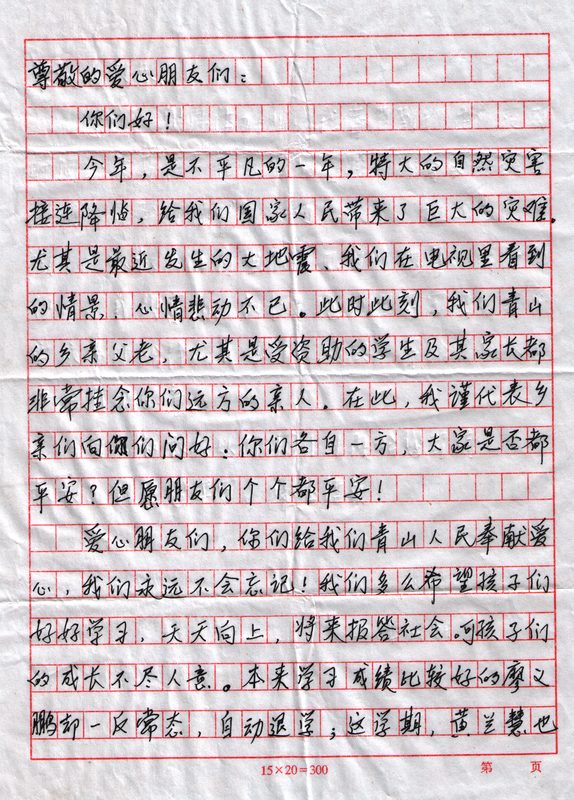 尊敬的爱心朋友们：
你们好！
今年，是不平凡的一年，特大的自然灾害
接连降临，给我们国家人民带来了巨大的灾难。
尤其是最近发生的大地震、我们在电视里看到
的情景，心情悲动不已。此时此刻，我们青山
的乡亲父老，尤其是受资助的学生及其家长都
非常挂念你们远方的亲人。在此，我谨代表乡
亲们向你们问好：你们各自一方，大家是否都
平安？但愿朋友们个个都平安！
爱心朋友们，你们给我们青山人民奉献爱
心，我们永远不会忘记！我们多么希望孩子们
好好学习，天天向上，将来报答社会。可孩子们
的成长不尽人意。本来学习成绩比较好的廖义
鹏却一反常态，自动退学；这学期，黄兰慧也
15×20=300
第 页